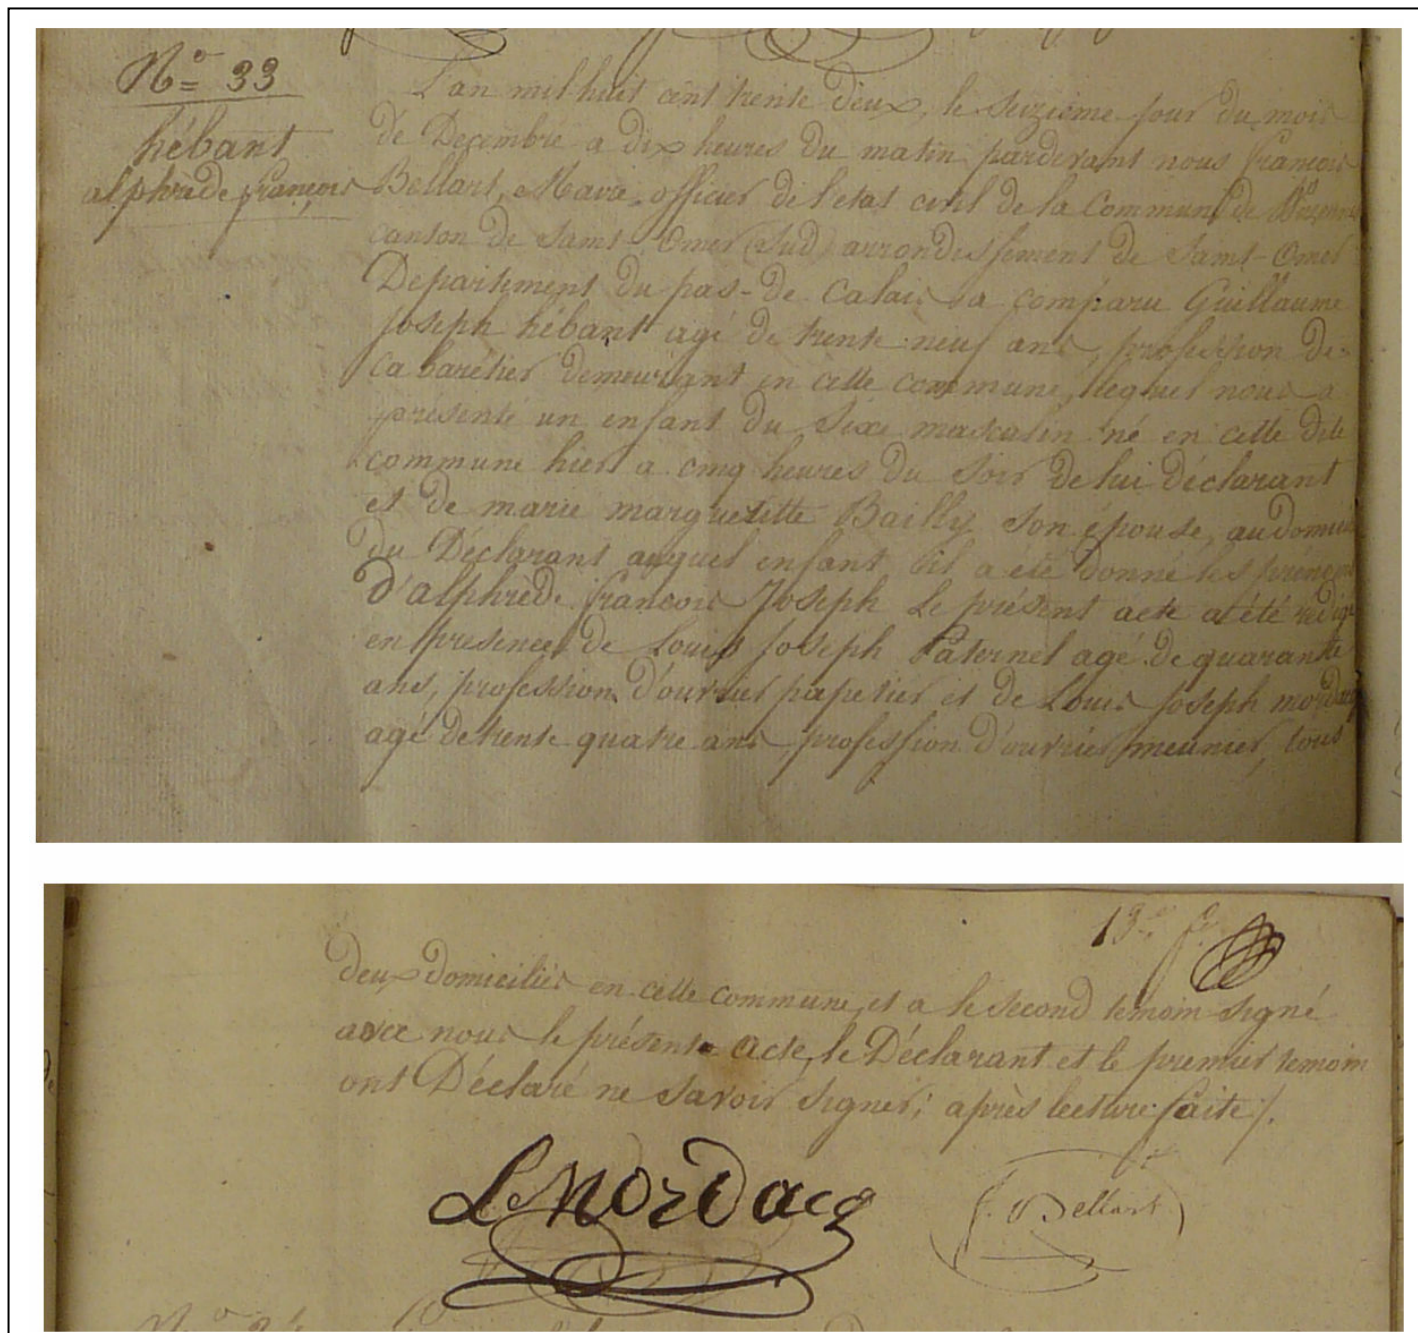 N° 33
hébant
alphrède françois
L'an mil huit cent trente deux, le seizième jour du mois
de Decembre a dix heures du matin pardevant nous françois
Bellart, Maire, officier de l'etat civil de la Commune de
canton de Saint-Omer (Sud) arrondissement de Saint-Omer
Departement du pas-de Calais a comparu Guillaume
Joseph hébant agé de trente neuf ans, profession de
cabarétier demeurant en cette commune, lequel nous a
présenté un enfant du sexe maskulin né en cette dite
commune hier a cinq heures du soir de lui déclarant
et de marie margueritte Bailly son épouse, au domicile
du Déclarant auquel enfant il a été donné les prénoms
D'alphrède françois Joseph Le présent acte a été rédigé
en presence de Louis Joseph Paternel agé de quarante
ans, profession d'ouvrier papetier et de Louis Joseph mordacq
agé de trente quatre ans profession d'ouvrier meunier, tous
13e f.
deux domiciliés en cette commune, et a le second temoin signé
avec nous le présente acte, le Déclarant et le premier temoin
ont Déclaré ne savoir signer; après lecture faite /.
L Mordacq
f. Bellart